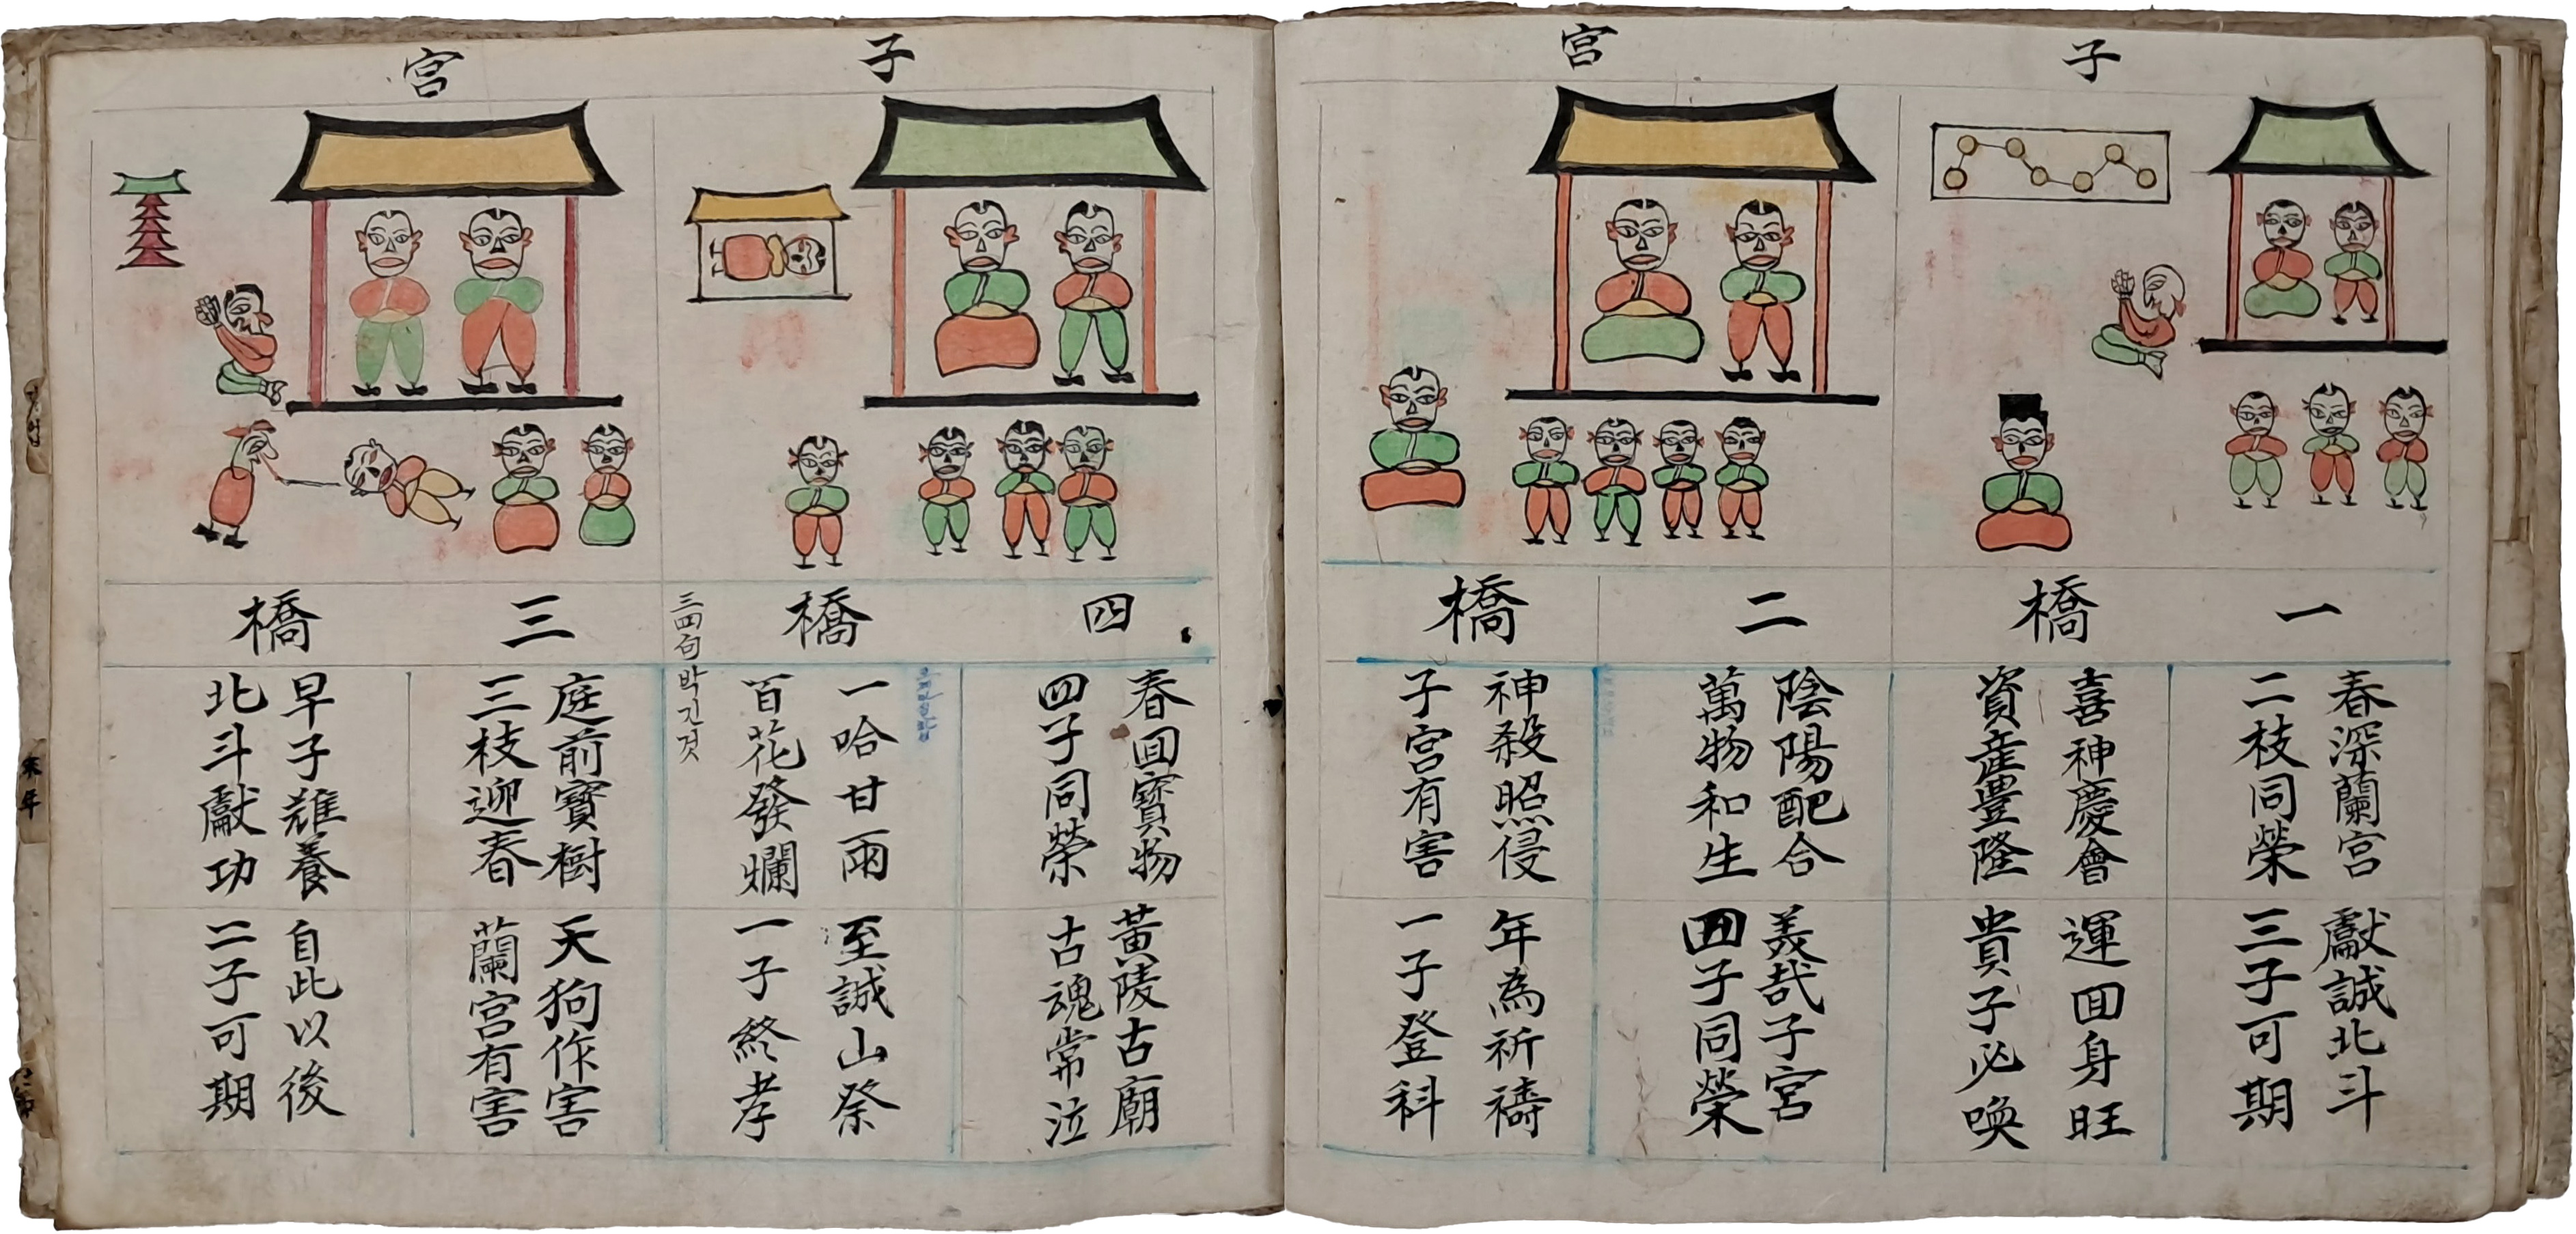 子宮
一橋
春深蘭宮
二枝同榮
喜神慶會
資産豊隆
獻誠北斗
三子可期
運回身旺
貴子必喚
二橋
陰陽配合
萬物和生
神殺照侵
子宮有害
美哉子宮
四子同榮
年為祈禱
一子登科
子宮
四橋
春回寶物
四子同榮
一哈甘雨
百花發爛
黃陵古廟
古魂常泣
至誠山祭
一子終孝
三四句 박긴것
三橋
庭前寶樹
三枝迎春
早子難養
北斗獻功
天狗作害
蘭宮有害
自此以後
二子可期
末年